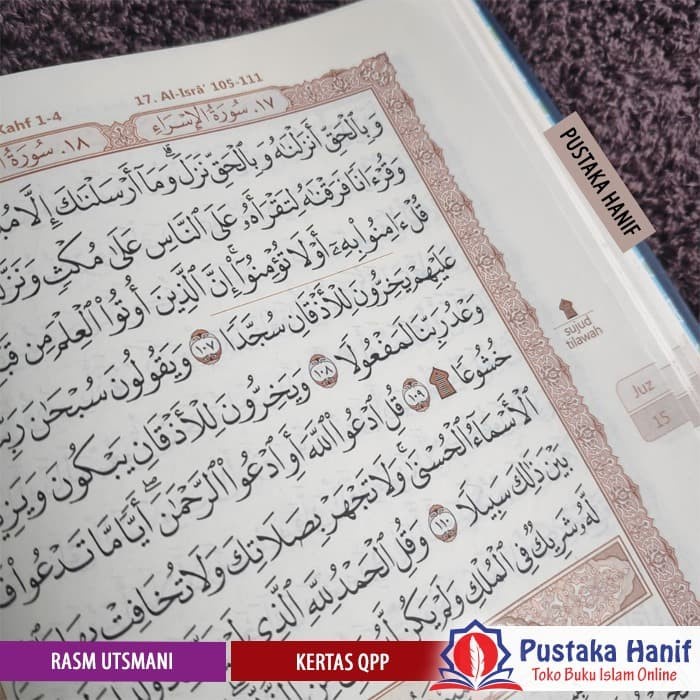 17. Al-Isrā' 105-111
ahf 1-4
١٧. سُورَةُ الْإِسْرَاءِ
١٨. سُورَةُ
وَبِٱلْحَقِّ أَنزَلْنَٰهُ وَبِٱلْحَقِّ نَزَلَۗ وَمَآ أَرْسَلْنَٰكَ إِلَّا
وَقُرْءَانًا فَرَقْنَٰهُ لِتَقْرَأَهُۥ عَلَى ٱلنَّاسِ عَلَىٰ مُكْثٍ
قُلْ ءَامِنُوا۟ بِهِۦٓ أَوْ لَا تُؤْمِنُوٓا۟ۚ إِنَّ ٱلَّذِينَ أُوتُوا۟ ٱلْعِلْمَ مِن
عَلَيْهِمْ يَخِرُّونَ لِلْأَذْقَانِ سُجَّدًا ١٠٧ وَيَقُولُونَ سُبْحَٰنَ
وَعْدُ رَبِّنَا لَمَفْعُولًا ١٠٨ وَيَخِرُّونَ لِلْأَذْقَانِ يَبْكُونَ
خُشُوعًا ۩ ١٠٩ قُلِ ٱدْعُوا۟ ٱللَّهَ أَوِ ٱدْعُوا۟ ٱلرَّحْمَٰنَۖ أَيًّا مَّا تَدْعُوا۟
ٱلْأَسْمَآءُ ٱلْحُسْنَىٰۚ وَلَا تَجْهَرْ بِصَلَاتِكَ وَلَا تُخَافِتْ
بَيْنَ ذَٰلِكَ سَبِيلًا ١١٠ وَقُلِ ٱلْحَمْدُ لِلَّهِ ٱلَّذِى
لَّهُۥ شَرِيكٌ فِى ٱلْمُلْكِ وَلَمْ يَكُن
PUSTAKA HANIF
sujud
tilawah
Juz
15
RASM UTSMANI
KERTAS QPP
Pustaka Hanif
Toko Buku Islam Online